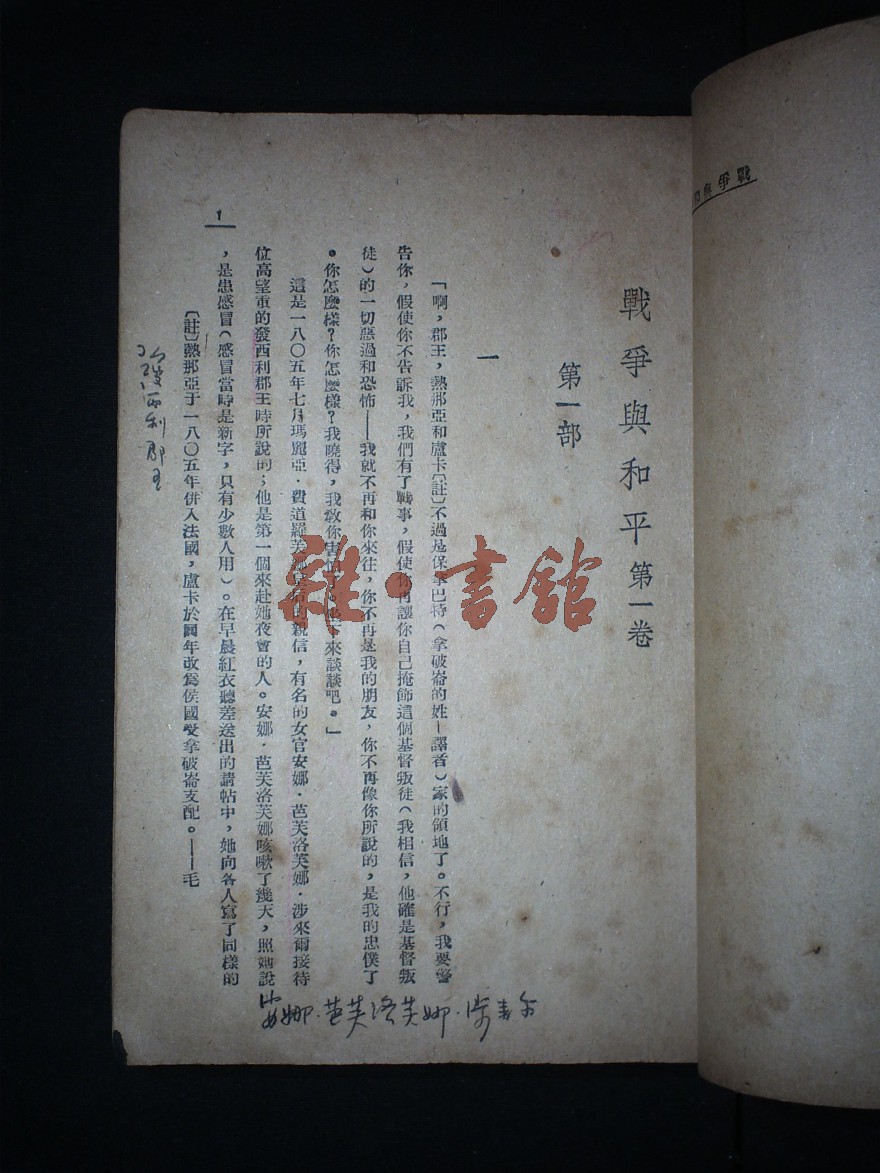 戰爭
戰爭與和平 第一卷
第一部
一
「啊，郡王，熱那亞和盧卡〔註〕不過是保拿巴特（拿破崙的姓—譯者）家的領地了。不行，我要警
告你，假使你不告訴我，我們有了戰事，假使你再讓你自己掩飾這個基督叛徒（我相信，他確是基督叛
徒）的一切惡過和恐怖——我就不再和你來往，你不再是我的朋友，你不再像你所說的，是我的忠僕了
。你怎麼樣？你怎麼樣？我曉得，我教你害怕來談談吧。」
這是一八〇五年七月瑪麗亞·費道羅芙娜的親信，有名的女官安娜·芭芙洛芙娜·涉來爾接待
位高望重的發西利郡王時所說的；他是第一個來赴她夜會的人。安娜·芭芙洛芙娜咳嗽了幾天，照她說
，是患感冒（感冒當時是新字，只有少數人用）。在早晨紅衣聽差送出的請帖中，她向各人寫了同樣的
〔註〕熱那亞于一八〇五年併入法國，盧卡於同年改為侯國受拿破崙支配。——毛
1
西利郡王
安娜·芭芙洛芙娜·涉來爾
雜·書館